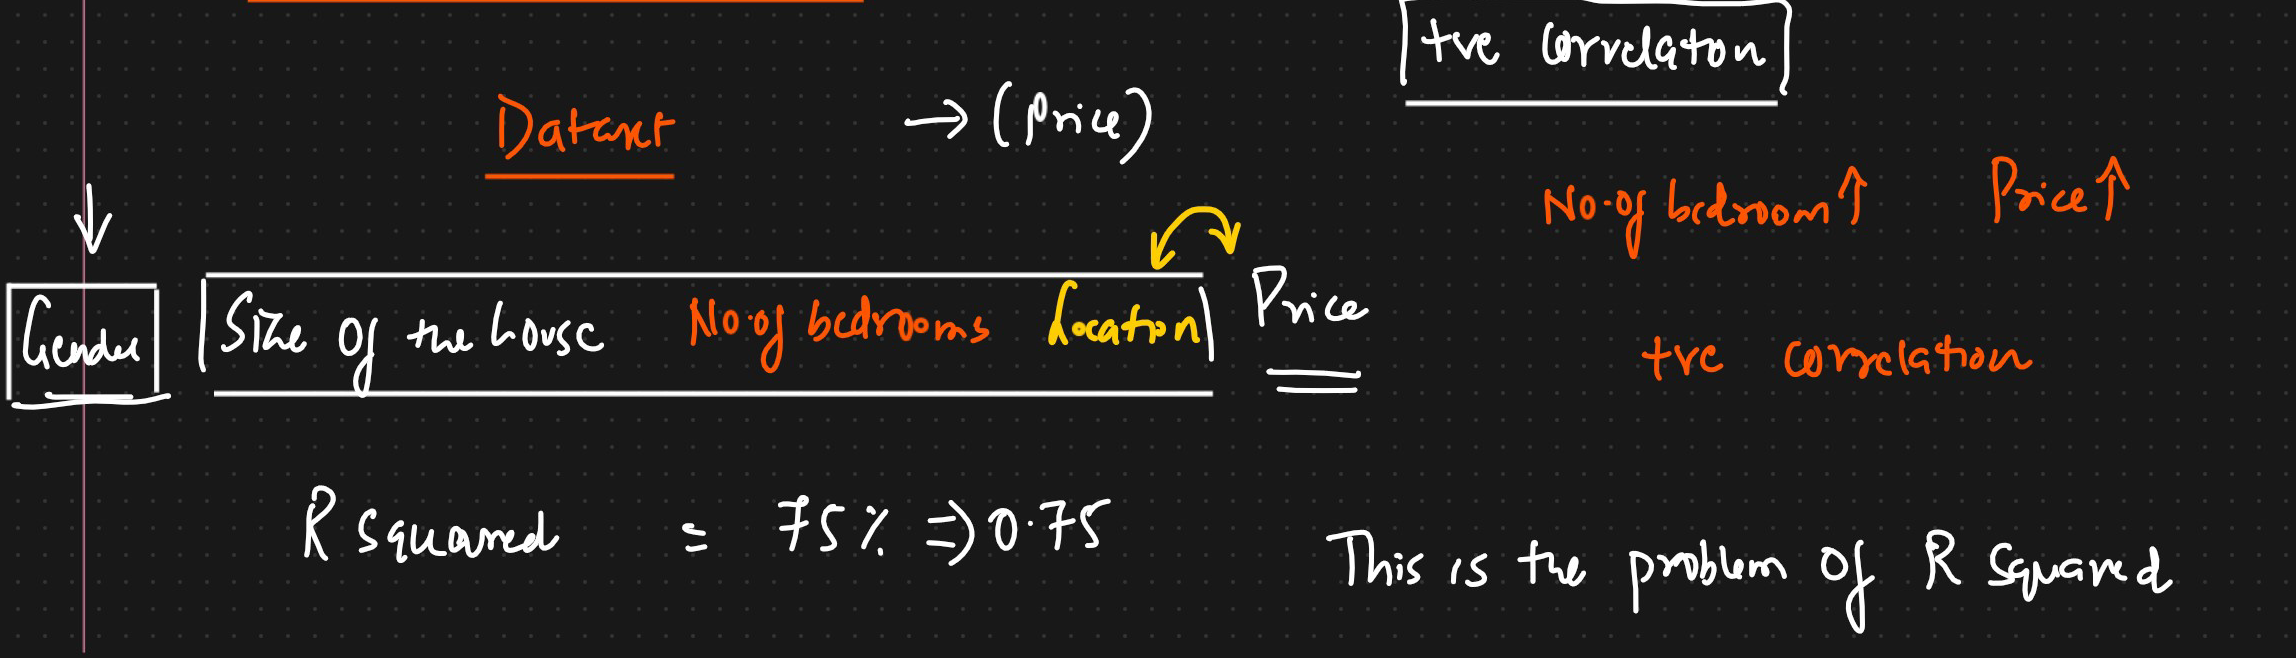 +ve correlaton
Dataset → (Price)
No. of bedroom ↑ Price ↑
Gender Size of the house No. of bedrooms Location Price
+ve correlation
R squared = 75% ⇒ 0.75
This is the problem of R squared